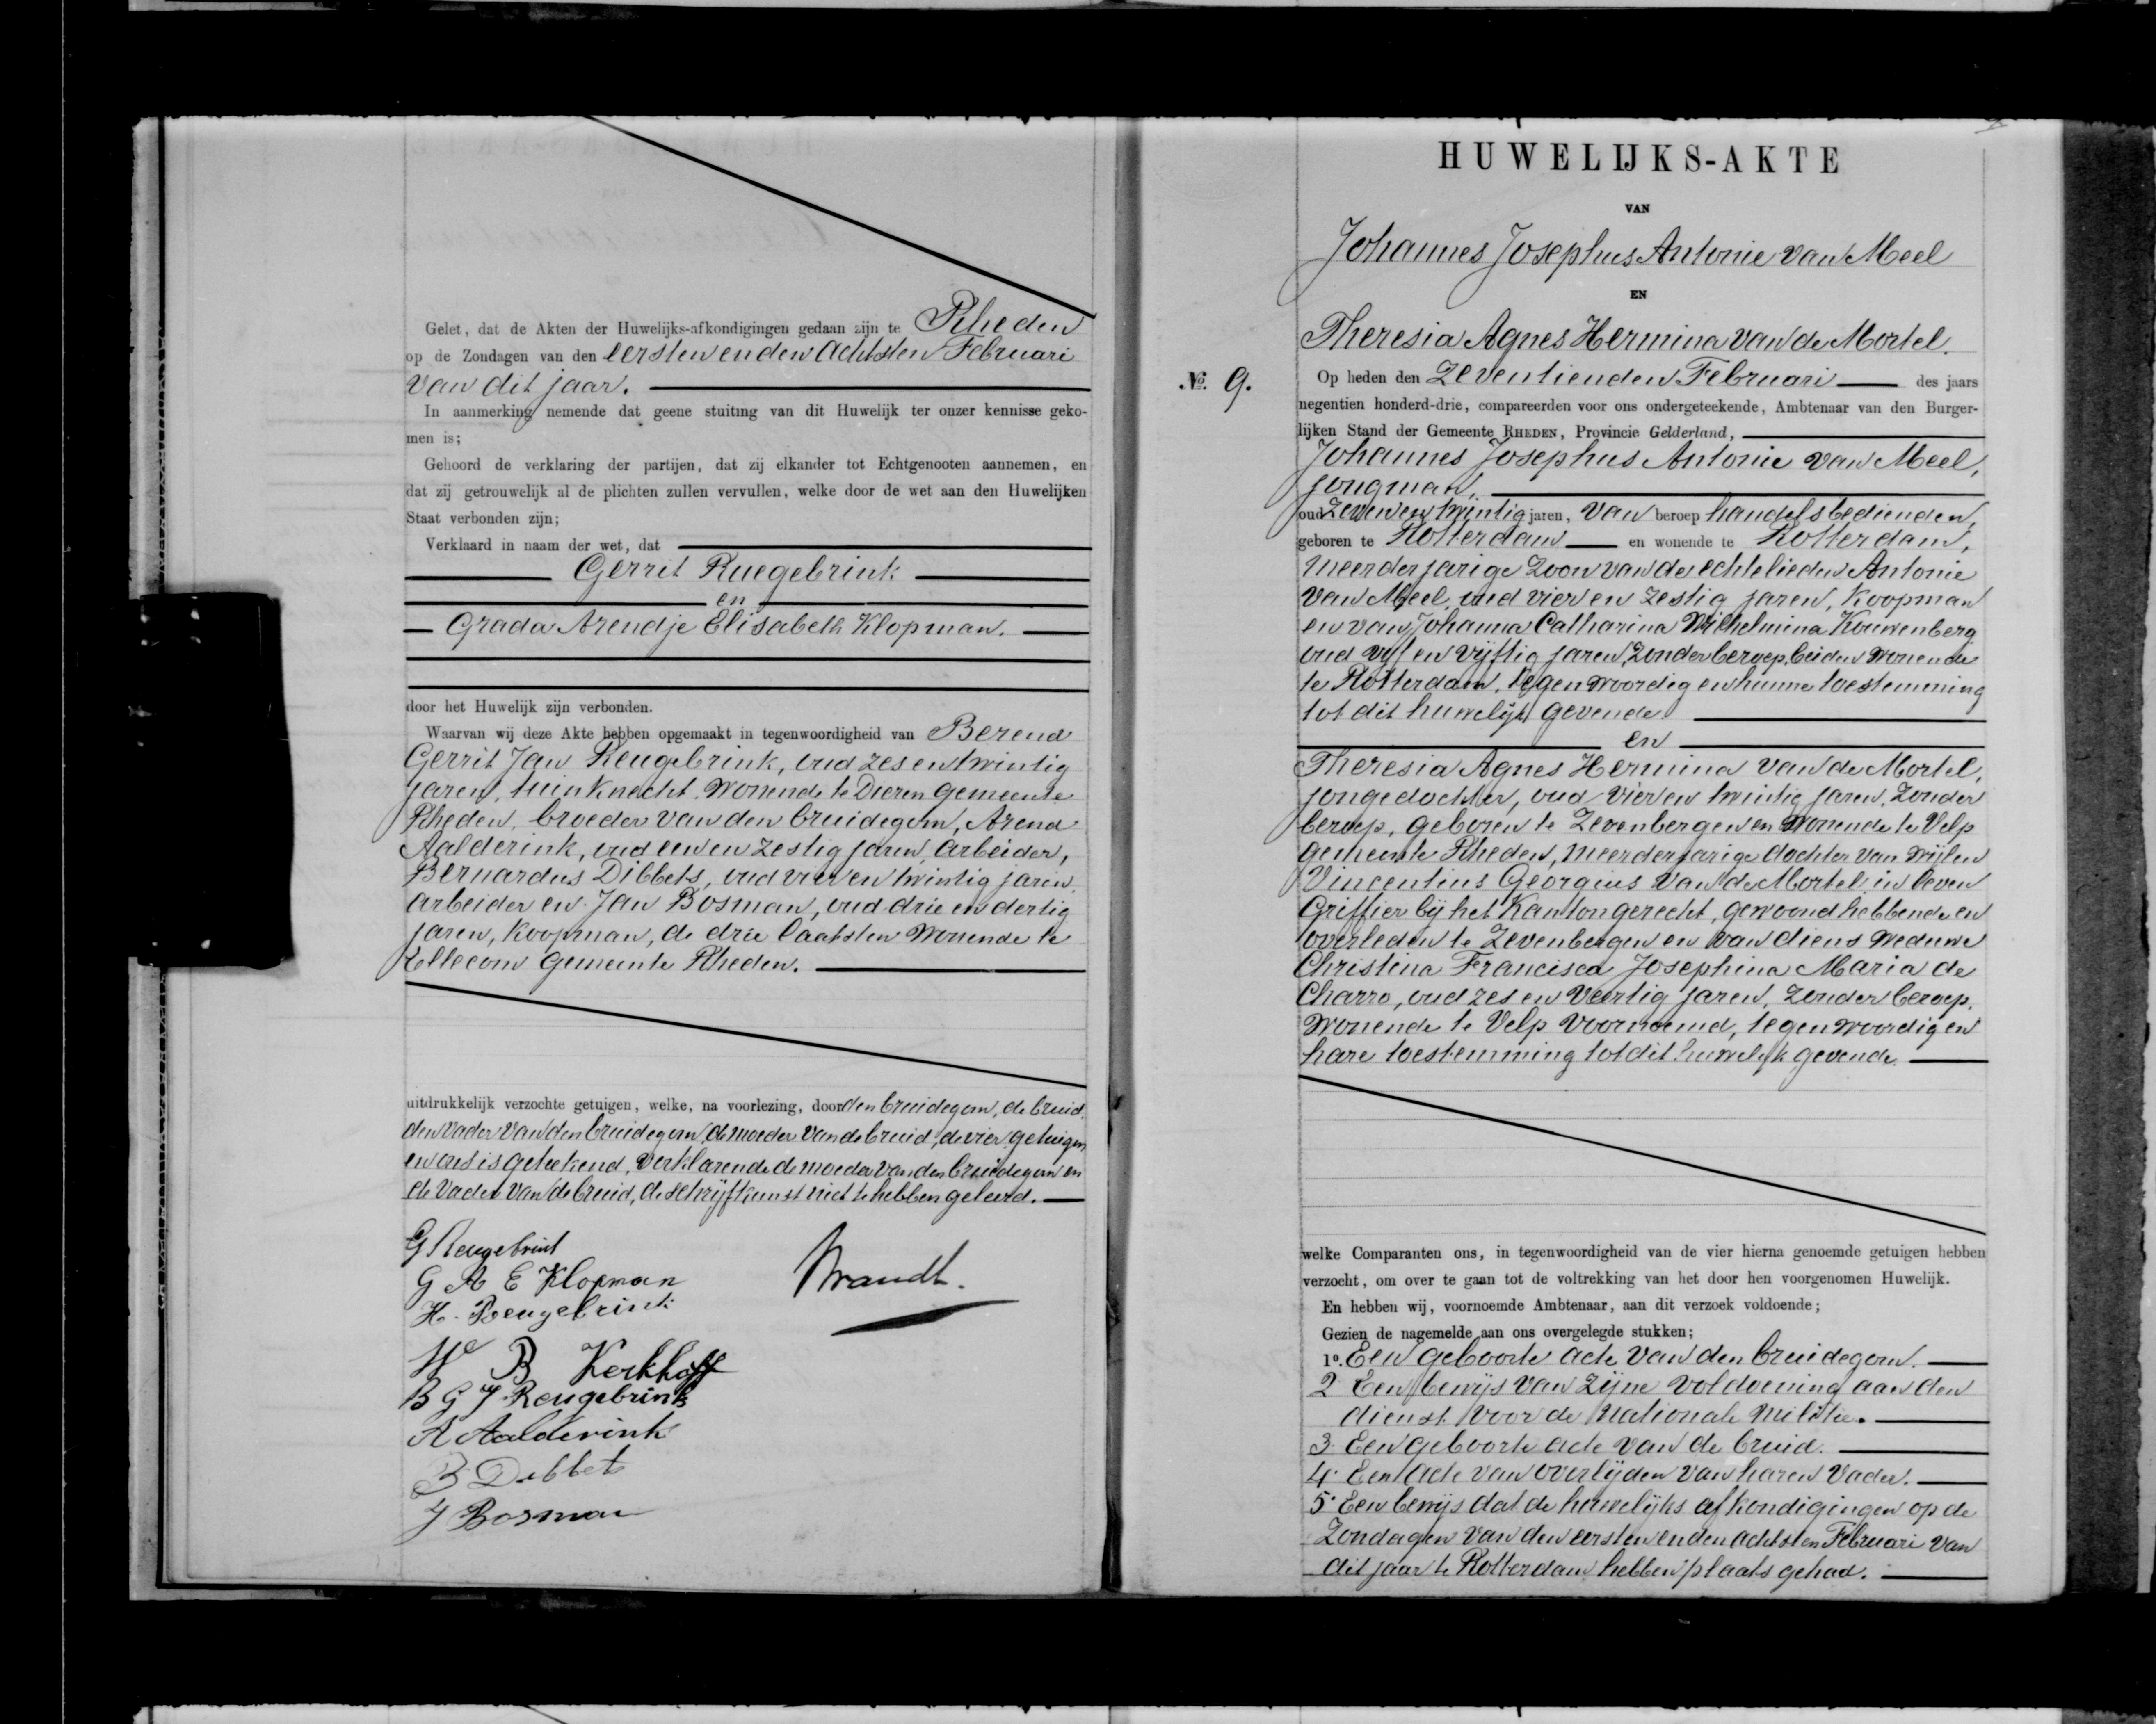 Gelet, dat de Akten der Huwelijks-afkondigingen gedaan zijn te Rheden
op de Zondagen van den eersten en den achtsten Februari
van dit jaar.
In aanmerking nemende dat geene stuiting van dit Huwelijk ter onzer kennisse geko-
men is;
Gehoord de verklaring der partijen, dat zij elkander tot Echtgenooten aannemen, en
dat zij getrouwelijk al de plichten zullen vervullen, welke door de wet aan den Huwelijken
Staat verbonden zijn;
Verklaard in naam der wet, dat
Gerrit Ruegebrink
en
Grada Arendje Elisabeth Klopman.
door het Huwelijk zijn verbonden.
Waarvan wij deze Akte hebben opgemaakt in tegenwoordigheid van Berend
Gerrit Jan Reugebrink, oud zes en twintig
jaren, tuinknecht, wonende te Dieren gemeente
Rheden, broeder van den bruidegom, Arend
Aalderink, oud een en zestig jaren, arbeider,
Bernardus Dibbets, oud vier en twintig jaren,
arbeider en Jan Bosman, oud drie en dertig
jaren, koopman, de drie laatsten wonende te
Ellecom gemeente Rheden.
uitdrukkelijk verzochte getuigen, welke, na voorlezing, door den bruidegom, de bruid,
den vader van den bruidegom, de moeder van de bruid, de vier getuigen
en ons is geteekend, verklarende de moeder van den bruidegom en
de vader van de bruid, de schrijfkunst niet te hebben geleerd.
G Reugebrink
G A E Klopman
Brandt.
H. Reugebrink
W B Kerkhoff
B G J Reugebrink
A Aalderink
B Dibbets
J Bosman
HUWELIJKS-AKTE
VAN
Johannes Josephus Antonie van Meel
EN
Theresia Agnes Hermina van de Mortel.
No. 9.
Op heden den zeventienden Februari des jaars
negentien honderd-drie, compareerden voor ons ondergeteekende, Ambtenaar van den Burger-
lijken Stand der Gemeente RHEDEN, Provincie Gelderland,
Johannes Josephus Antonie van Meel,
jongman,
oud zeven en twintig jaren, van beroep handelsbedienden,
geboren te Rotterdam en wonende te Rotterdam,
meerderjarige zoon van de echtelieden Antonie
van Meel, oud vier en zestig jaren, koopman
en van Johanna Catharina Wilhelmina Kouwenberg
oud vijf en vijftig jaren, zonder beroep, beiden wonende
te Rotterdam, tegenwoordig en hunne toestemming
tot dit huwelijk gevende.
en
Theresia Agnes Hermina van de Mortel,
jongedochter, oud vier en twintig jaren, zonder
beroep, geboren te Zevenbergen en wonende te Velp
gemeente Rheden, meerderjarige dochter van wijlen
Vincentius Georgius van de Mortel in leven
Griffier bij het Kantongerecht, gewoond hebbende en
overleden te Zevenbergen en van diens weduwe
Christina Francisca Josephina Maria de
Charro, oud zes en veertig jaren, zonder beroep,
wonende te Velp voornoemd, tegenwoordig en
hare toestemming tot dit huwelijk gevende.
welke Comparanten ons, in tegenwoordigheid van de vier hierna genoemde getuigen hebben
verzocht, om over te gaan tot de voltrekking van het door hen voorgenomen Huwelijk.
En hebben wij, voornoemde Ambtenaar, aan dit verzoek voldoende;
Gezien de nagemelde aan ons overgelegde stukken;
1o. Een geboorte acte van den bruidegom.
2 Een bewijs van zijne voldoening aan den
dienst voor de Nationale Militie.
3. Een geboorte acte van de bruid.
4. Een acte van overlijden van haren vader.
5. Een bewijs dat de huwelijks afkondigingen op de
Zondagen van den eersten en den achtsten Februari van
dit jaar te Rotterdam hebben plaats gehad.